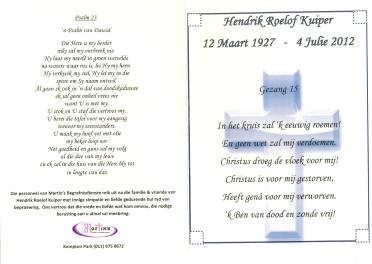 Psalm 23
'n Psalm van Dawid
Die Here is my herder
niks sal my ontbreek nie.
Hy laat my neerlê in groen weivelde
na waters waar rus is, lei Hy my heen.
Hy verkwik my siel, Hy lei my in die
spore om Sy naam ontwil.
Al gaan ek ook in 'n dal van doodskaduwee
ek sal geen onheil vrees nie
want U is met my.
U stok en U staf die vertroos my.
U berei die tafel voor my aangesig
teenoor my teenstanders.
U maak my hoof vet met olie
my beker loop oor.
Net goedheid en guns sal my volg
al die dae van my lewe
en ek sal in die huis van die Here bly tot
in lengte van dae.
Die personeel van Martin's Begrafnisdienste reik uit na die familie & vriende van
Hendrik Roelof Kuiper met innige simpatie en liefde gedurende hul tyd van
beproewing. Ons vertrou dat die vrede en liefde wat hom omvou, die nodige
berusting aan u almal sal meebring.
Martin's
Kempton Park (011) 975 8672
Hendrik Roelof Kuiper
12 Maart 1927 - 4 Julie 2012
Gezang 15
In het kruis zal 'k eeuwig roemen!
En geen wet zal mij verdoemen.
Christus droeg de vloek voor mij!
Christus is voor mij gestorven,
Heeft genâ voor mij verworven,
'k Ben van dood en zonde vrij!